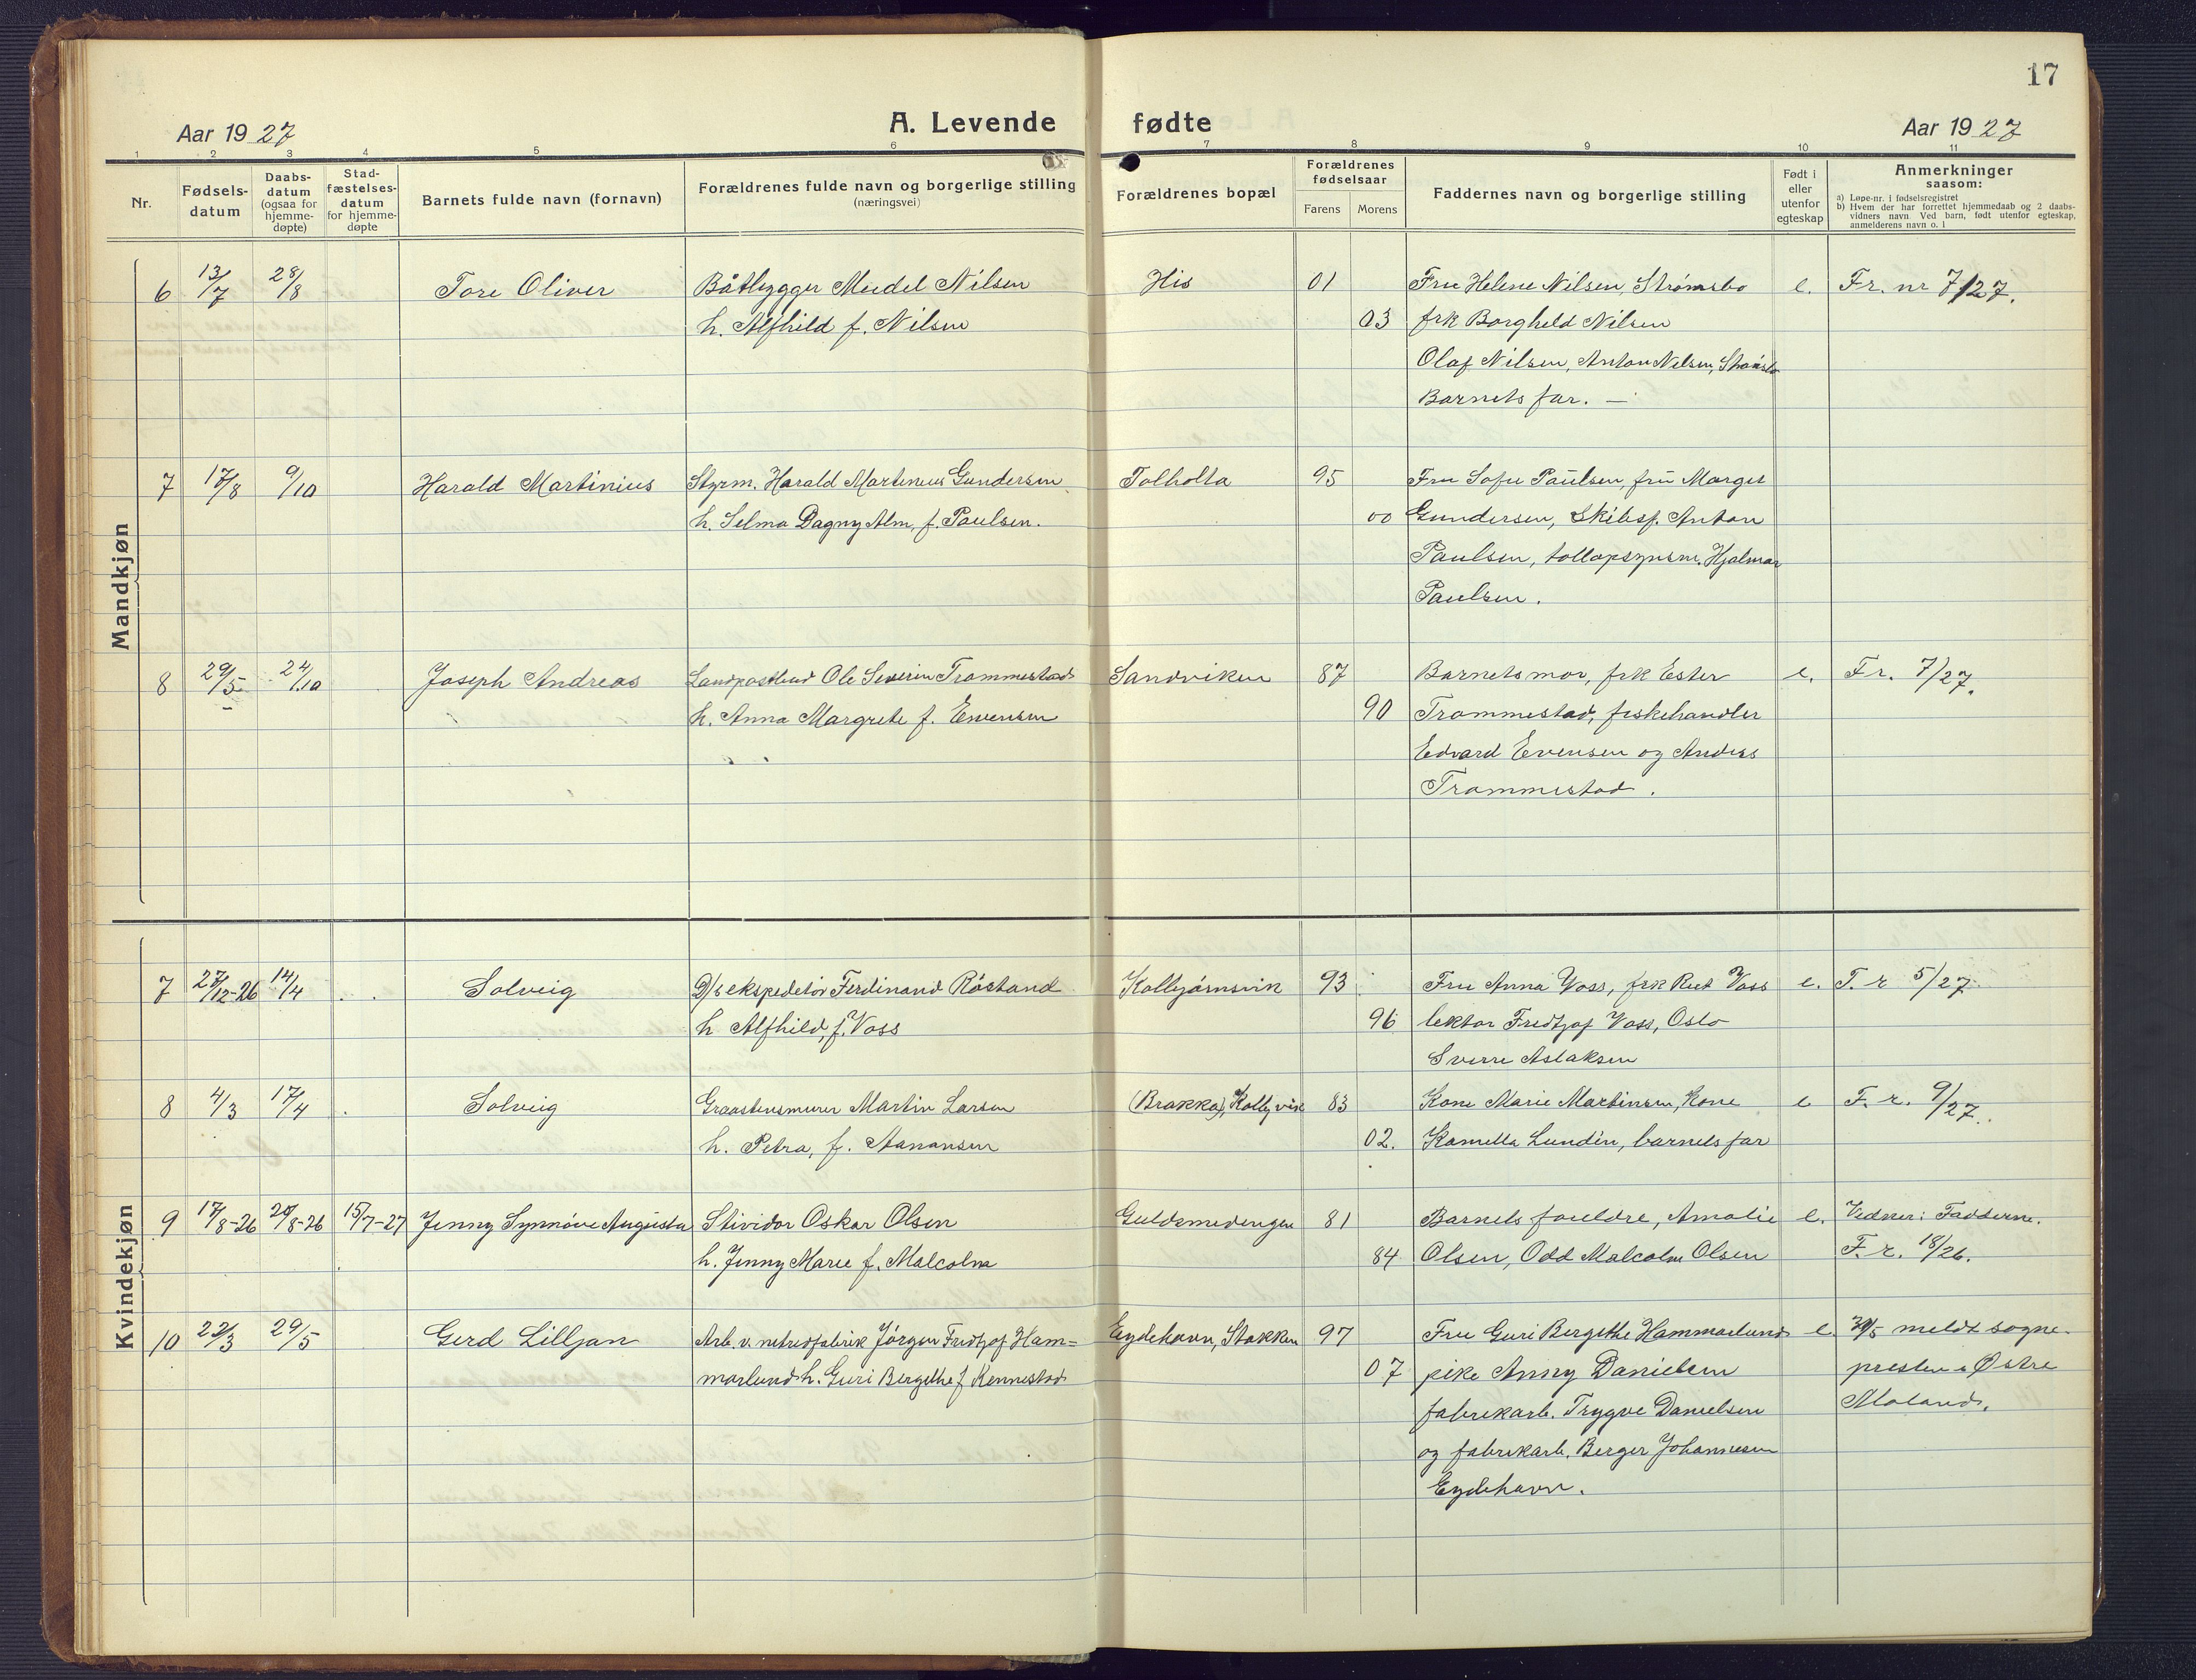 17
Aar 1927
A. Levende fødte
Aar 1927
1 2 3 4 5 6 7 8 9 10 11
Nr.
Fødsels-
datum
Daabs-
datum
(ogsaa for
hjemme-
døpte)
Stad-
fæstelses-
datum
for hjemme-
døpte
Barnets fulde navn (fornavn)
Forældrenes fulde navn og borgerlige stilling
(næringsvei)
Forældrenes bopæl
Forældrenes
fødselsaar
Farens Morens
Faddernes navn og borgerlige stilling
Født i
eller
utenfor
egteskap
Anmerkninger
saasom:
a) Løpe-nr. i fødselsregistret
b) Hvem der har forrettet hjemmedaab og 2 daabs-
vidners navn. Ved barn, født utenfor egteskap,
anmelderens navn o. l
Mandkjøn
6 13/7 28/8 Tore Oliver Båtbygger Meidel Nilsen His 01 Fru Helene Nilsen, Strømsbo e. Fr. nr 7/27.
h. Alfhild f. Nilsen 03 frk Borghild Nilsen
Olaf Nilsen, Anton Nilsen, Strømsbo
Barnets far. —
7 17/8 9/10 Harald Martinius Styrm. Harald Martinius Gundersen Tolholta 95 Fru Sofie Paulsen, fru Margit
h. Selma Dagny Alm, f. Paulsen. 00 Gundersen, Skibsf. Anton
Paulsen, tollopsynsm. Hjalmar
Paulsen.
8 29/5 24/10 Joseph Andreas Landpostbud Ole Severin Trommestad Sandviken 87 Barnets mor, frk Ester e. Fr. 7/27.
h. Anna Margrete f. Evensen 90 Trommestad, fiskehandler
Edvard Evensen og Anders
Trommestad.
Kvindekjøn
7 27/12-26 14/4 Solveig D/s ekspeditör Ferdinand Röstand Kolbjørnsvik 93 Fru Anna Voss, frk Rut Voss e. F. r 5/27.
h Alfhild, f. Voss 96 lektor Fredtjof Voss, Oslo
Sverre Aslaksen
8 4/3 17/4 Solveig Graastensmurer Martin Larsen (Brakka), Kolbj.vik 83 Kone Marie Martinsen, Kone e F. r. 9/27.
h. Petra, f. Aanonsen 02. Kamilla Lundin, barnets far
9 17/8-26 20/8-26 15/7-27 Jenny Synnöve Augusta Stividor Oskar Olsen Guldsmedengen 81 Barnets foreldre, Amalie e. Vedner: Fadderne.
h. Jenny Marie f. Malcolm 84 Olsen, Odd Malcolm Olsen F. r. 18/26.
10 22/3 29/5 Gerd Lilljan Arb. v. nitridfabrik Jörgen Fredtjof Ham= Eydehavn, Stokken 97 Fru Guri Bergithe Hammarlund e. 30/5 meldt sogne-
marlund h. Guri Bergithe f Kennestad 07 pike Anny Danielsen presten i Østre
fabrikarb. Trygve Danielsen Moland.
og fabrikarb. Berger Johannesen
Eydehavn.